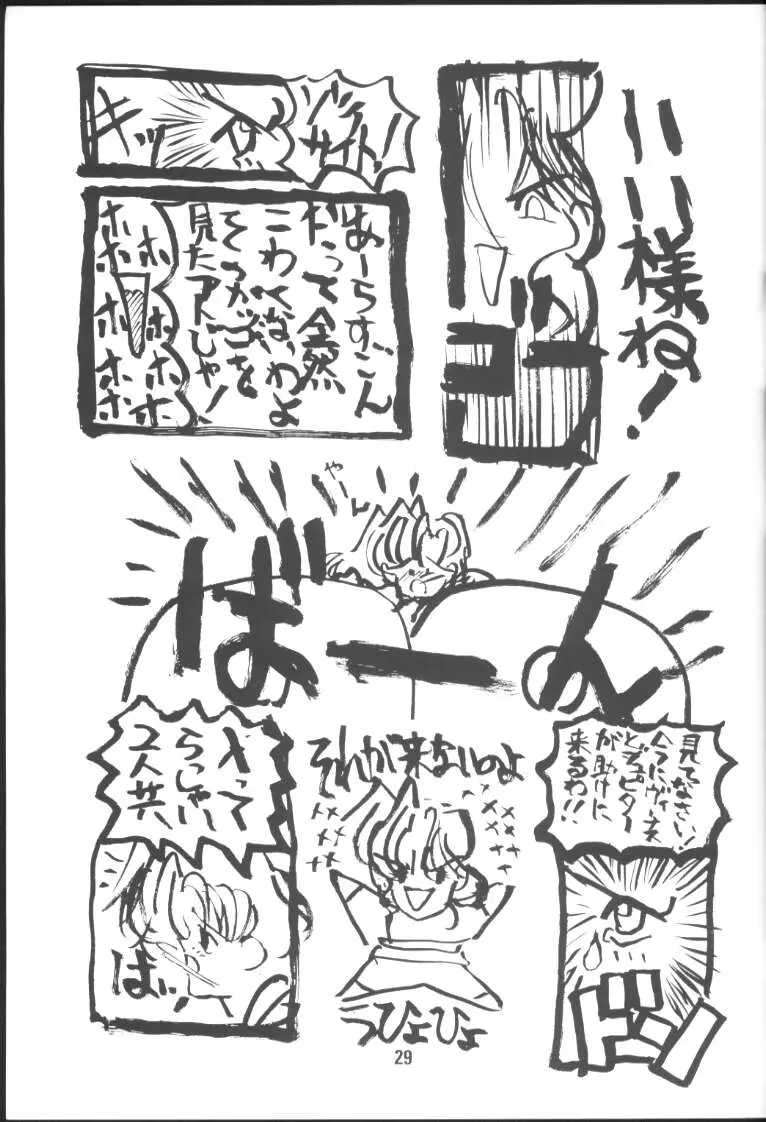 いい様ね!
サイト!
キッ
あーらすごん
だって全然
こわくなくってよ
そのかっこを
見たアトじゃ!
ホホホホホホ
ホホホホホ
やーん
ばーん
見てなさい!
今にヴィーナス
とジュピター
が助けに
来るわ!!
ドン
それが来ないのよ
っひょひょ
入って
らっしゃい
2人共
ばっ!
29